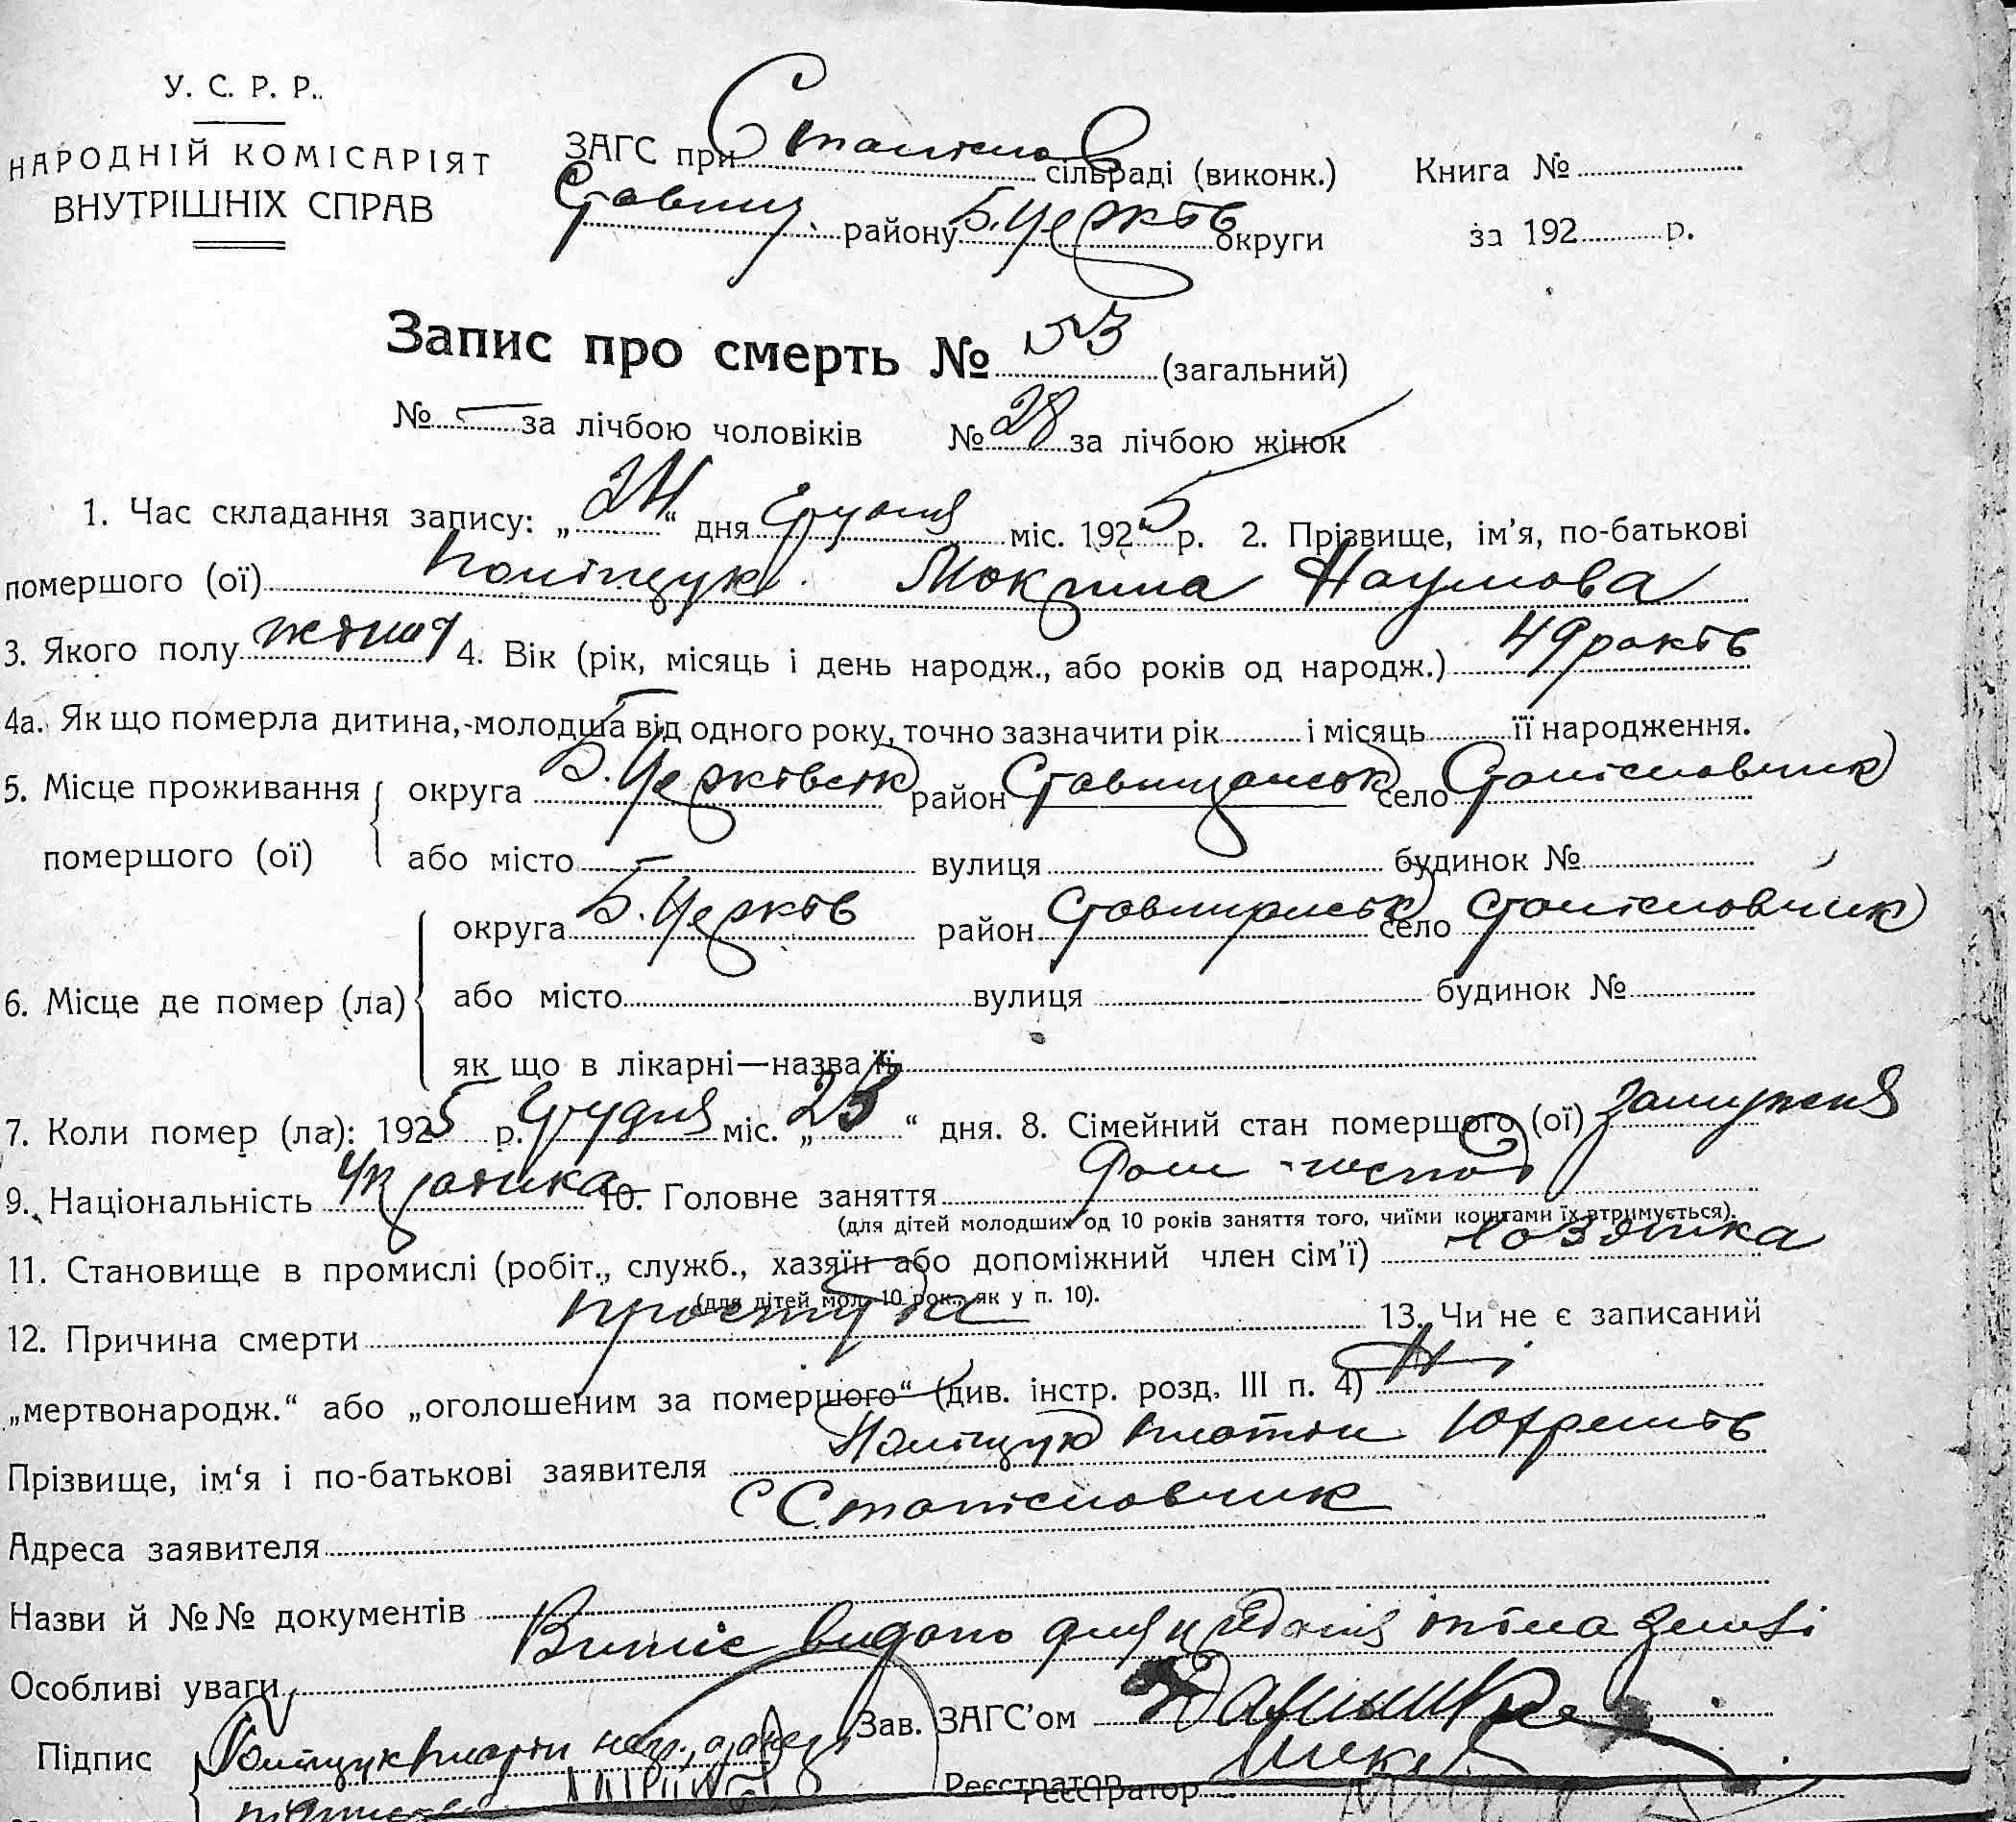 У. С. Р. Р.
НАРОДНІЙ КОМІСАРІЯТ
ВНУТРІШНІХ СПРАВ
ЗАГС при Станіслав сільраді (виконк.)
Ставищ. району Б. Церків округи
Книга №
за 192 р.
Запис про смерть № 53 (загальний)
№ за лічбою чоловіків № 28 за лічбою жінок
1. Час складання запису: „24“ дня Грудня міс. 1925 р. 2. Прізвище, ім’я, по-батькові
помершого (ої) Поліщук Мокрина Наумова
3. Якого полу жіноч 4. Вік (рік, місяць і день народж., або років од народж.) 49 років
4а. Як що померла дитина, молодша від одного року, точно зазначити рік і місяць її народження.
5. Місце проживання помершого (ої) округа Б. Церківськ район Ставищанськ село Станіславчик
або місто вулиця будинок №
6. Місце де помер (ла) округа Б. Церків район Ставищанськ село Станіславчик
або місто вулиця будинок №
як що в лікарні—назва її
7. Коли помер (ла): 1925 р. Грудня міс. „23“ дня. 8. Сімейний стан помершого (ої) Замужня
9. Національність Українка 10. Головне заняття Дом господ
(для дітей молодших од 10 років заняття того, чиїми коштами їх втримується).
11. Становище в промислі (робіт., служб., хазяїн або допоміжний член сім’ї) хозяйка
(для дітей мол. 10 рок., як у п. 10).
12. Причина смерти простуда 13. Чи не є записаний
„мертвонародж.“ або „оголошеним за помершого“ (див. інстр. розд. III п. 4) Ні
Прізвище, ім‘я і по-батькові заявителя Поліщук Платон
Адреса заявителя С Станіславчик
Назви й №№ документів
Особливі уваги Випис видано для тіла землі
Підпис Поліщук Платон
Зав. ЗАГС’ом
Реєстратор
Реєстратор